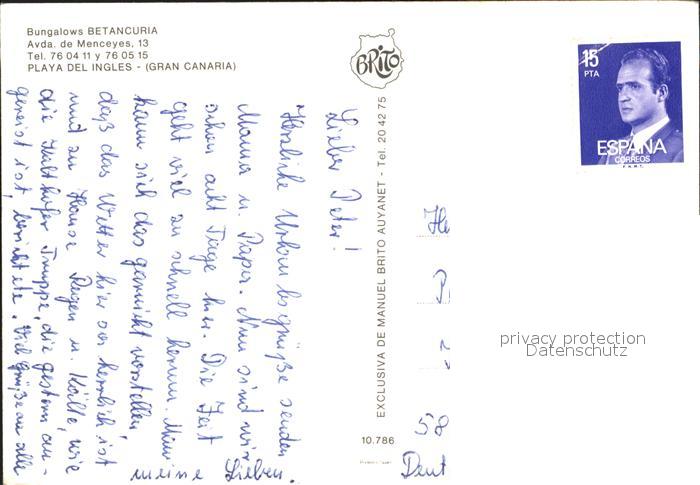 Bungalows BETANCURIA
Avda. de Menceyes, 13
Tel. 76 04 11 y 76 05 15
PLAYA DEL INGLES - (GRAN CANARIA)
BRITO
15
PTA
ESPAÑA
CORREOS
F.N.M.T.
Lieber Peter!
Herzliche Urlaubsgrüße senden
Mama u. Papa. Nun sind wir
schon acht Tage hier. Die Zeit
geht viel zu schnell herum. Man
kann sich das garnicht vorstellen,
daß das Wetter hier so herrlich ist
und zu Hause Regen u. Kälte, wie
die Truppe, die gestern an-
gereist ist, berichtete. Viel Grüße an alle
meine Lieben.
EXCLUSIVA DE MANUEL BRITO AUYANET - Tel. 20 42 75
10.786
He
P
58
Deut
privacy protection
Datenschutz